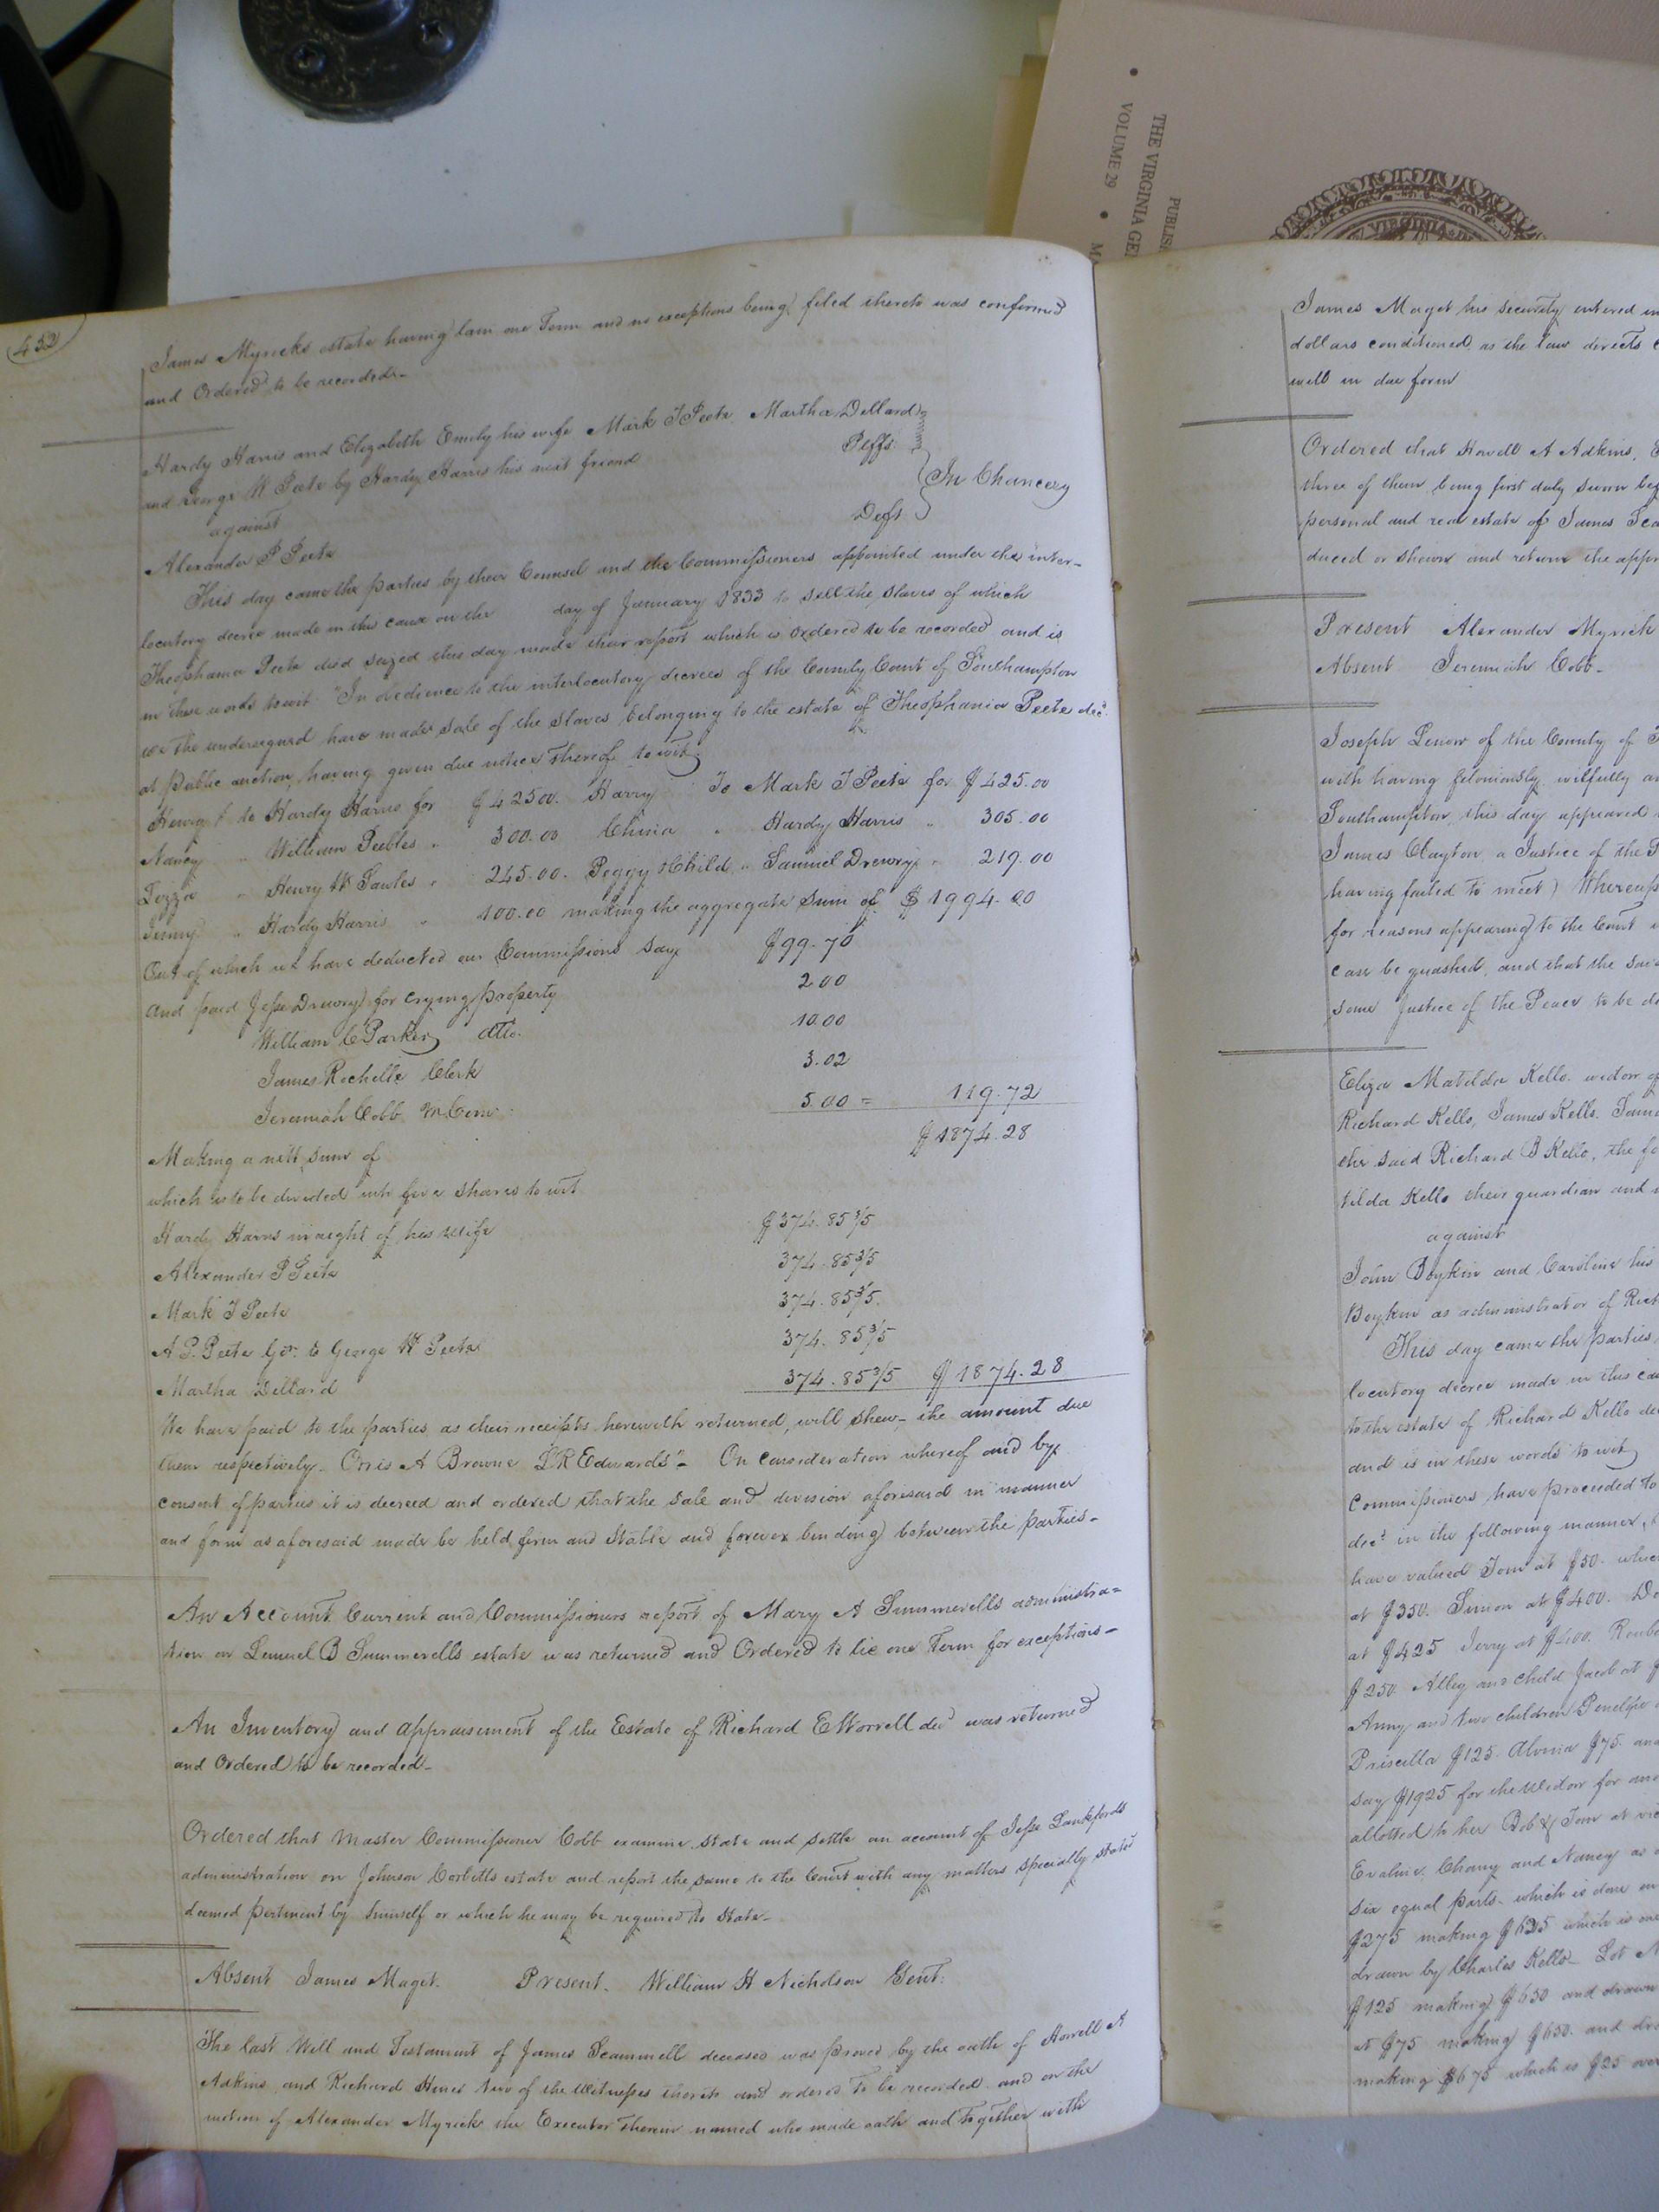 THE VIRGINIA GE
VOLUME 29 •
PUBLIS
VIRGINIA
452
James Myricks estate having lain one Term and no exceptions being filed thereto was confirmed
and Ordered to be recorded.
Hardy Harris and Elizabeth Emily his wife Mark T Peete, Martha Dillard
and George W Peete by Hardy Harris his next friend Plffs.
against
In Chancery
Alexander P Peete Deft
This day came the parties by their Counsel and the Commissioners appointed under the inter-
locutory decree made in this cause on the day of January 1833 to sell the slaves of which
Theophania Peete died seized this day made their report which is ordered to be recorded and is
in these words to wit: "In obedience to the interlocutory decree of the County Court of Southampton
we the undersigned have made sale of the slaves belonging to the estate of Theophania Peete decd.
at public auction, having given due notice thereof, to wit,
Henry to Hardy Harris for $425.00. Harry To Mark T Peete for $425.00
Nancy " William Peebles " 300.00 China " Hardy Harris " 305.00
" Henry W Sawles " 245.00. Peggy & Child " Samuel Drewry " 219.00
Jenny " Hardy Harris " 100.00 making the aggregate sum of $1994.00
Out of which we have deducted our Commissions say $99.70
and paid Jesse Drewry for crying property 2.00
William C Parker Atto. 10.00
James Rochelle Clerk 3.02
Jeremiah Cobb M Com. 5.00 = 119.72
Making a nett sum of $1874.28
which is to be divided into five shares to wit
Hardy Harris in right of his wife $374.85 3/5
Alexander P Peete 374.85 3/5
Mark T Peete 374.85 3/5.
A P. Peete Gdn. to George W Peete 374.85 3/5
Martha Dillard 374.85 3/5 $1874.28
We have paid to the parties, as their receipts herewith returned, will shew, the amount due
them respectively. Orris A Browne L R Edwards" - On consideration whereof and by
consent of parties it is decreed and ordered that the sale and division aforesaid in manner
and form as aforesaid made be held firm and stable and forever binding between the parties-
An Account Current and Commissioners report of Mary A Summerells administra-
tion on Lemuel B Summerells estate was returned and Ordered to lie one Term for exceptions-
An Inventory and appraisement of the Estate of Richard E Worrell decd was returned
and Ordered to be recorded-
Ordered that Master Commissioner Cobb examine state and settle an account of Jesse Lankfords
administration on Johnson Corbetts estate and report the same to the Court with any matters specially stated
deemed pertinent by himself or which he may be required to state-
Absent James Maget. Present. William H Nicholson Gent:
The last Will and Testament of James Scammell deceased was proved by the oath of Howell A
Adkins and Richard Hines two of the Witnesses thereto and ordered to be recorded and on the
motion of Alexander Myrick the Executor therein named who made oath and together with
James Maget his security entered in
dollars conditioned as the law directs
will in due form
Ordered that Howell A Adkins,
three of them being first duly sworn
personal and real estate of James
duced or shown and return the
Present Alexander Myrick
Absent Jeremiah Cobb-
Joseph Lenow of the County of
with having feloniously, wilfully
Southampton, this day appeared
James Clayton a Justice of the
having failed to meet) Whereup
for reasons appearing to the Court
case be quashed, and that the
some Justice of the Peace to be
Eliza Matilda Kello widow of
Richard Kello, James Kello.
the said Richard B Kello, the
tilda Kello their guardian and
against
John Boykin and Caroline his
Boykin as administrator of
This day came the parties
locutory decree made in this
to the estate of Richard Kello
and is in these words to wit
Commissioners have proceeded to
decd in the following manner,
have valued Tom at $50.
at $350. Simon at $400.
at $425 Jerry at $400.
$250. Alley and child Jacob at
Anny and two children Penelope
Priscilla $125. Alvina $75. and
say $1925 for the Widow for
allotted to her Bob & Tom at
Evaline, Chany and Nancy as
six equal parts- which is done
$275 making $625 which is
drawn by Charles Kello- Lot
$125 making $650 and drawn
at $75 making $650. and
making $675 which is $25 over